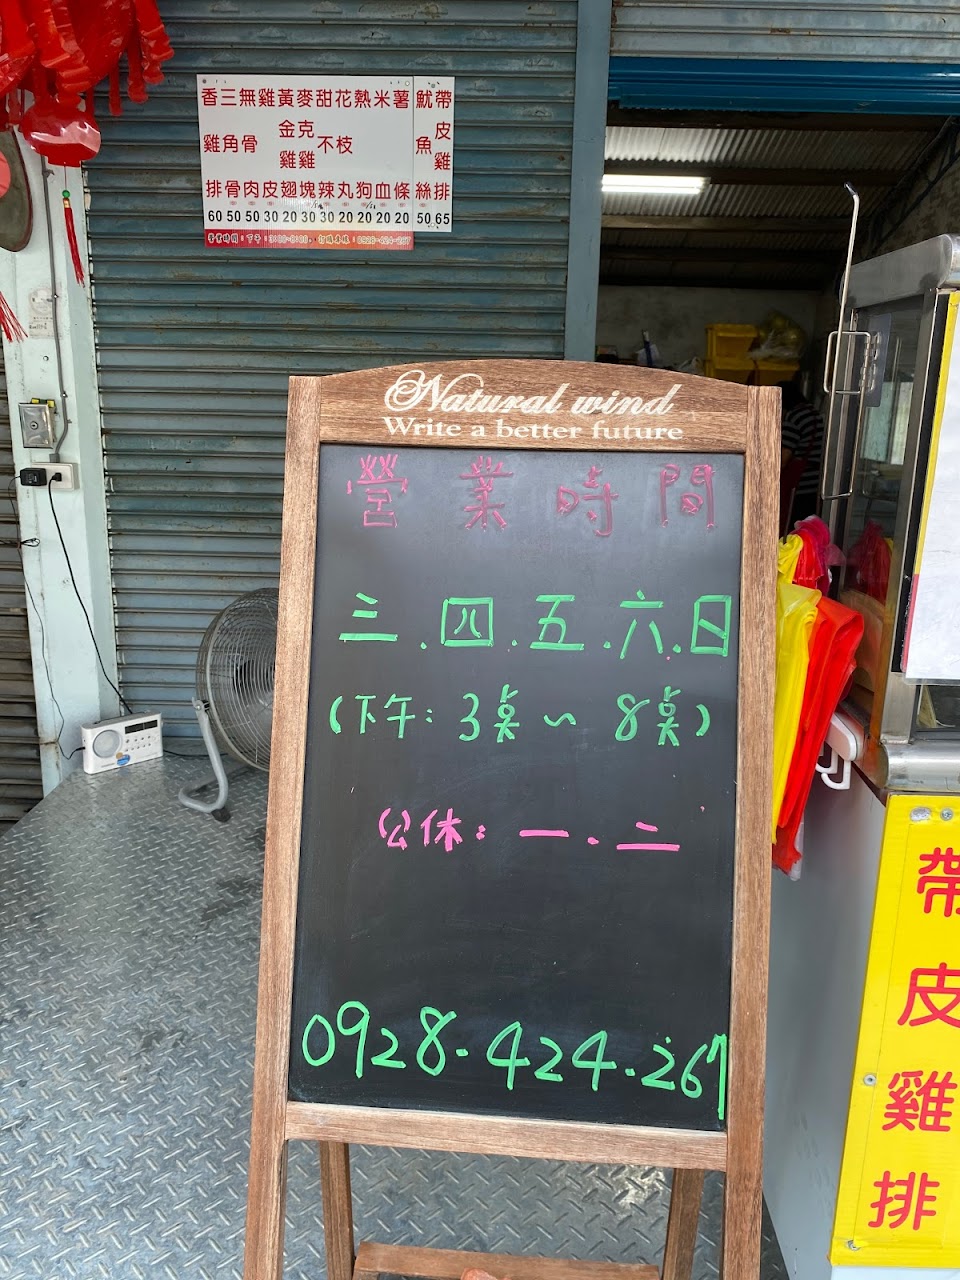 香雞排 60
三角骨 50
無骨肉 50
雞皮 30
黃金雞翅 20
麥克雞塊 30
甜不辣 30
花枝丸 20
熱狗 20
米血 20
薯條 20
魷魚絲 50
帶皮雞排 65
營業時間：下午：3:00-8:00，訂購專線：0928-424-267
Natural wind
Write a better future
營業時間
三.四.五.六.日
(下午: 3桌~8桌)
公休: 一.二
0928-424-267
帶皮雞排